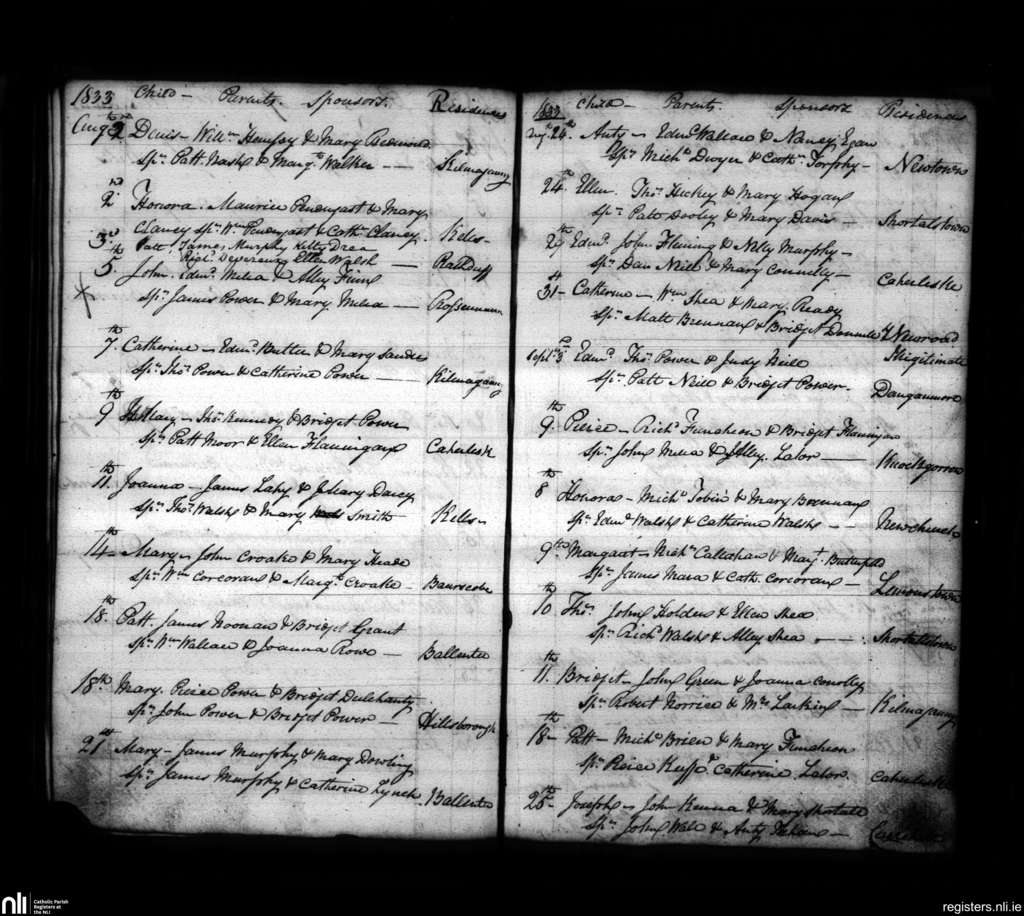 1833 Child - Parents. Sponsors. Residences
Augt 2nd Davis - Willm & Mary
Sprs Patt Walsh & Margt Walker - Kilmaganny
2nd Honora. Maurice Pendergast & Mary
Clancy Sprs Wm Pendergast & Cathe Clancy. Kells -
3rd Patt. James Murphy Kitty Drea
Richd Devereux Ellen Walsh - Rathduff
5th John. Edmd Melia & Alley Finn
Sprs James Power & Mary Melia -
7th Catherine - Edmd Butler & Mary
Sprs Thos Power & Catherine Power - Kilmaganny
9th Mary - Thos Kennedy & Bridget Power
Sprs Patt Moor & Ellen Flanningan Caherlesk
11th Joanna - James Lahy & Mary Darcy
Sprs Thos Walsh & Mary Smith Kells -
14th Mary - John Croake & Mary Heade
Sprs Wm Corcoran & Margt Croake -
18th Patt. James Noonan & Bridget Grant
Sprs Wm Wallace & Joanna Rowe - Ballintee
18th Mary. Peirce Power & Bridget Dulehanty
Sprs John Power & Bridget Power - Hillsborough
21st Mary - James Murphy & Mary Dowling
Sprs James Murphy & Catherine Lynch Ballintee
1833 Child - Parents. Sponsors Residences
Augt 24th Anty - Edmd Wallace & Nancy Egan
Sprs Michl Dwyer & Cathn Torphy - Newtown
24th Ellen. Thos Hickey & Mary Hogan
Sprs Patt Dooley & Mary Davis - Shortalstown
29th Edmd John Fleming & Nelly Murphy -
Sprs Dan Neill & Mary Connelly - Caherleske
31 - Catherine - Wm Shea & Mary Ready
Sprs Matt Brennan & Bridget Newroad
Illigitimate
Septr 8 Edmd Thos Power & Judy Neill
Sprs Patt Neill & Bridget Power. Danganmore
9th Peirce - Richd Funcheon & Bridget Flaningan
Sprs John Melia & Alley. Lalor -
8th Honora - Michl Tobin & Mary Brennan
Sprs Edmd Walsh & Catherine Walsh - Newchurch
9th Margaret - Michl Callahan & Mary Butterfild
Sprs James Mara & Cath. Corcoran -
10th Thos John Holden & Ellen Shea
Sprs Richd Walsh & Alley Shea - Shortallstown
11th Bridget - John Green & Joanna Conolly
Sprs Robert Norrice & Mrs Larkin - Kilmaganny
18th - Patt - Michl Brien & Mary Funcheon
Sprs Peirce Catherine Lalor. Caherlesk
25th Joseph - John Kenna & Mary Shortall
Sprs John Wall & Anty -
nli Catholic Parish
Registers at
the NLI
registers.nli.ie